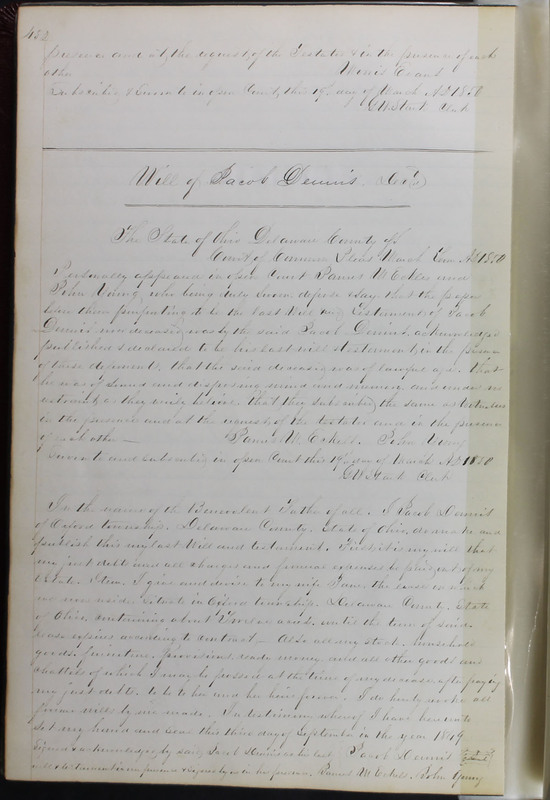 432
presence and at the request of the Testator & in the presence of each
other Morris Evans
Subscribed & Sworn to in open Court, this 19th day of March AD 1850
D W Stark Clerk
Will of Jacob Dennis. Dec'd
The State of Ohio Delaware County, ss
Court of Common Pleas March Term AD 1850
Personally appeared in open Court James M Eckles and
John Young, who being duly sworn depose & say, that the paper
before them purporting to be the last Will and Testament of Jacob
Dennis now deceased, was by the said Jacob Dennis, acknowledged
published & declared to be his last will & testament, in the presence
of these deponents, that the said deceased was of lawful age, that
he was of sound mind and disposing mind and memory and under no
restraint, as they verily believe. that they subscribed the same as attested
in the presence and at the request of the testator and in the presence
of each other — James M. Eckels. John Young
Sworn to and subscribed in open Court this 19th day of March AD 1850
D W Stark Clerk
In the name of the Benevolent Father of all. I Jacob Dennis
of Oxford township, Delaware County, State of Ohio, do make and
publish this my last Will and testament. First it is my will that
my just debts and all charges and funeral expenses be paid out of my
Estate. Item, I give and devise to my wife Jane, the lease on which
we now reside, situate in Oxford township, Delaware County, State
of Ohio, containing about Twelve acres, until the time of said
lease expires according to contract — Also all my stock, household
goods, furniture, provisions, ready money and all other goods and
chattels of which I may be possessed at the time of my decease, after paying
my just debts. to be to her and her heirs forever. I do hereby revoke all
former wills by me made. In testimony whereof I have hereunto
set my hand and seal this third day of September in the year 1849
Signed & acknowledged by said Jacob Dennis as his last Jacob Dennis seal
will & testament in our presence & signed by us in his presence. James M Eckels. John Young